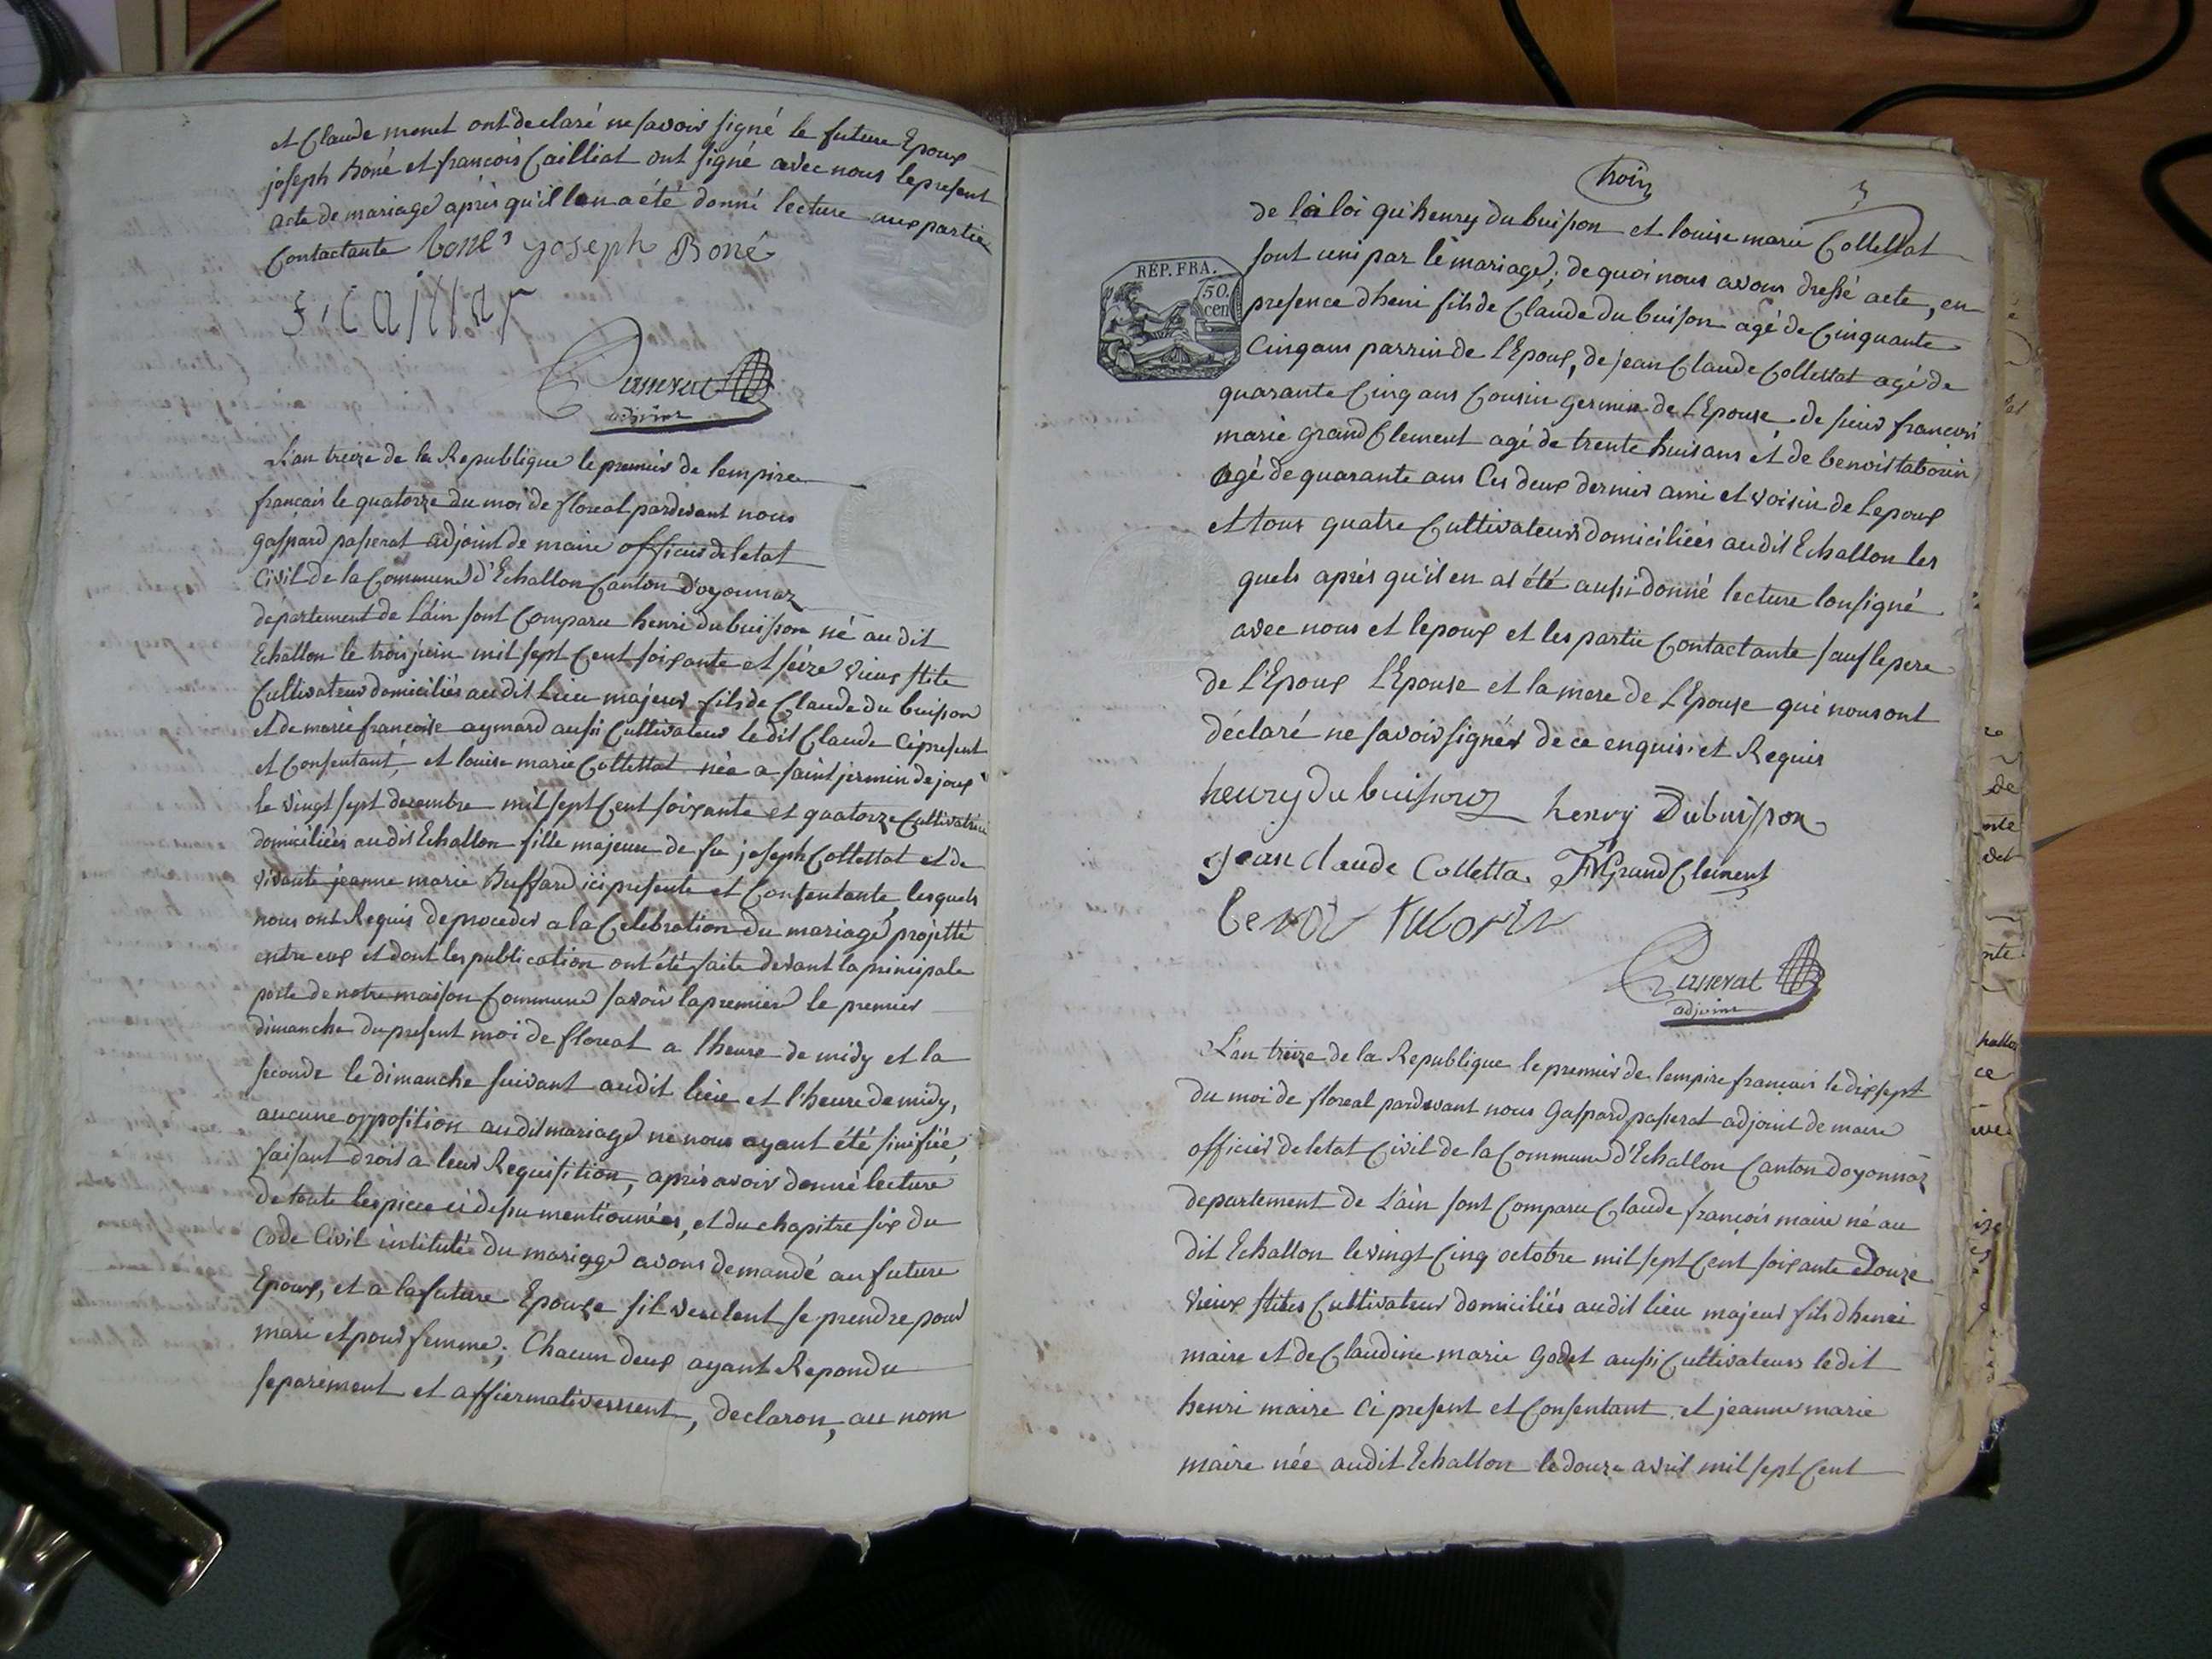 et Claude monet ont declaré ne savoir signé le future Epoux
joseph boné et francois Cailliat ont signé avec nous le present
acte de mariage après qu'il l'en a été donné lecture aux partie
Contactante boné joseph Boné
f. caillat
Passerat
adjoint
L'an treize de la Republique le premier de lempire
francais le quatorze du moi de floreal pardevant nous
gaspard passerat adjoint de maire officier de letat
Civil de la Commune d'Echallon Canton d'oyonnaz
departement de L'ain sont Comparu henri dubuisson né au dit
Echallon le trois juin mil sept Cent soixante et seize vieux stile
Cultivateur domiciliés audit Lieu majeur fils de Claude du buisson
et de marie francoise aymard aussi Cultivateur ledit Claude Ci present
et Consentant, et louise marie Collettat née a saint jermin de joux
le vingt sept decembre mil sept Cent soixante et quatorze Cultivatrice
domiciliées audit Echallon fille majeure de fu joseph Collettat et de
vivante jeanne marie Buffard ici presente et Consentante, lesquels
nous ont Requis de proceder a la Celebration du mariage projetté
entre eux et dont les publication ont été faite devant la principale
porte de notre maison Commune savoir la premier le premier
dimanche du present moi de floreal a l'heure de midy et la
seconde le dimanche suivant audit lieu et l'heure de midy,
aucune opposition audit mariage ne nous ayant été sinifiée,
faisant droit a leur Requisition, après avoir donné lecture
de toute les piece ci desu mentionnées, et du chapitre six du
Code Civil intitulé du mariage avons demandé au future
Epoux, et a la future Epouse sil veulent se prendre pour
mari et pour femme; Chacun deux ayant Repondu
separément et affiermativement, declaron, au nom
trois
3
de la loi qu'henry du buisson et louise marie Collettat
sont uni par le mariage; de quoi nous avons dressé acte, en
REP. FRA.
50.
cen
presence dheni fils de Claude du buisson agé de Cinquante
Cinq ans parrin de L'Epoux, de jean Claude Collettat agé de
quarante Cinq ans Cousin germin de L'Epouse de sieur francois
marie grand Clement agé de trente huis ans et de benoit taborin
agé de quarante ans Ces deux dernier ami et voisin de lepoux
et tous quatre Cultivateurs domiciliées audit Echallon les
quels après qu'il en at été aussi donné lecture lon signé
avec nous et lepoux et les partie Contactante sauf le pere
de L'Epoux L'Epouse et la mere de L'Epouse qui nous ont
déclaré ne savoir signér de ce enquis et Requis
henry du buisson henry Dubuisson
jean claude Colletta FMGrandClement
benoi taborin
Passerat
adjoint
L'an treize de la Republique le premier de lempire francais le dix sept
du moi de floreal pardevant nous Gaspard passerat adjoint de maire
officier de letat Civil de la Commune d'Echallon Canton doyonnaz
departement de L'ain sont Comparu Claude francois maire né au
dit Echallon le vingt Cinq octobre mil sept Cent soixante douze
vieux stiles Cultivateur domiciliés audit lieu majeur fils dhenri
maire et de Claudine marie godet aussi Cultivateurs ledit
henri maire Ci present et Consentant et jeanne marie
maire née audit Echallon le douze avril mil sept Cent